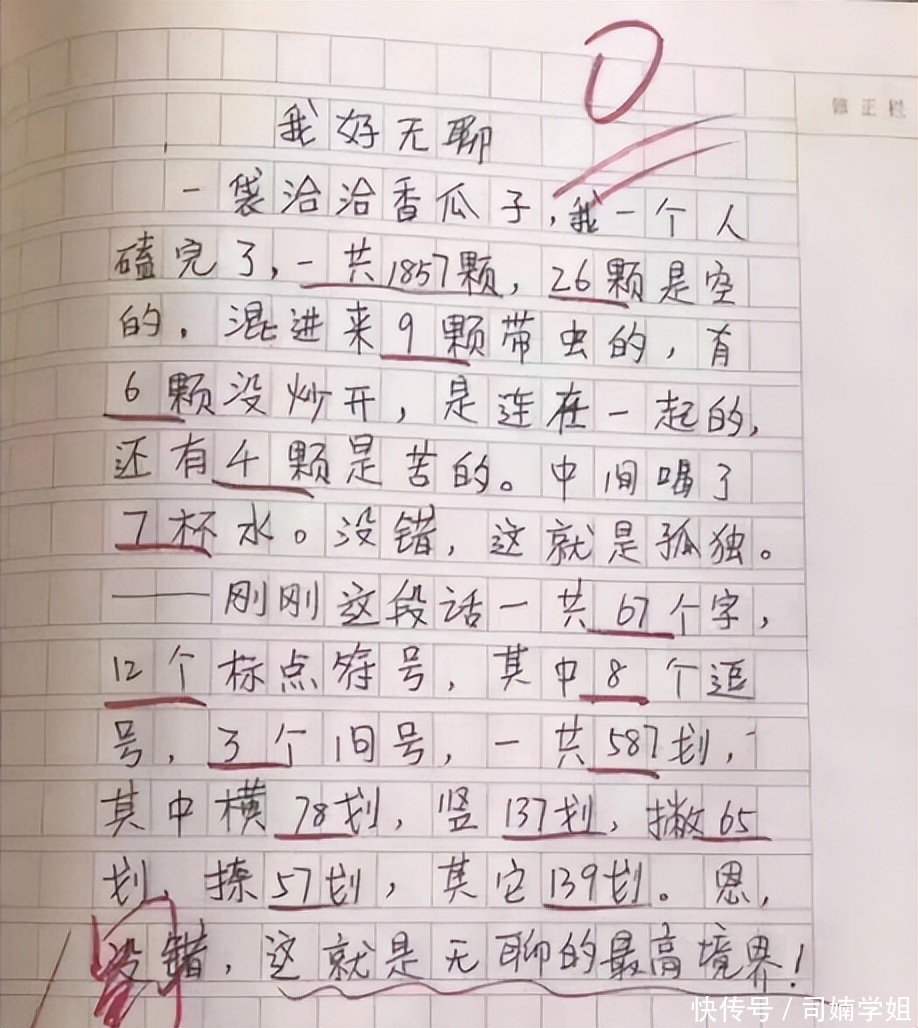 0
修正栏
我好无聊
一袋洽洽香瓜子,我一个人
磕完了,一共1857颗,26颗是空
的,混进来9颗带虫的,有
6颗没炒开,是连在一起的,
还有4颗是苦的。中间喝了
7杯水。没错,这就是孤独。
——刚刚这段话一共67个字,
12个标点符号,其中8个逗
号,3个问号,一共587划,
其中横78划,竖137划,撇65
划,捺57划,其它139划。恩,
没错,这就是无聊的最高境界!
快传号/司婻学姐